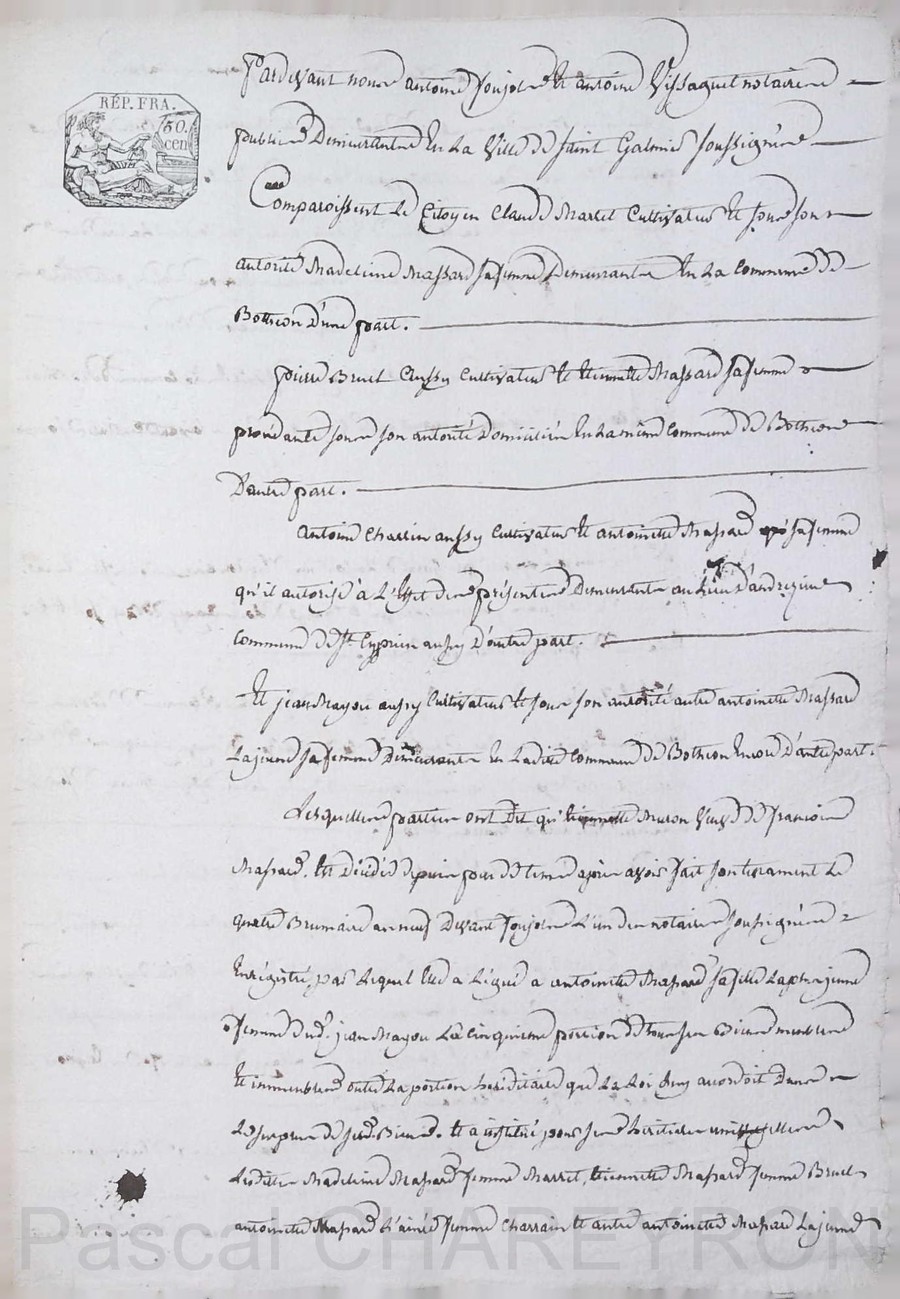 RÉP. FRA.
50. cen
Pardevant nous antoine Poujol et antoine Vissaguet notaires
publics Demeurants En La Ville de Saint Galmier soussignés
Comparoissent Le Citoyen Claude Marret Cultivateur et sous son
autorité Madeleine Massard sa femme Demeurants En La Commune de
Bothéon D'une part.
pierre Bruel aussy Cultivateur et etiennette Massard sa femme
procédante sous son autorité Domiciliés En La même Commune de Bothéon
D'autre part.
antoine Charrin aussy Cultivateur et antoinette Massard sa femme
qu'il autorise à L'effet des présentes Demeurants au Lieu D'andrezieux
commune de St. Cyprien aussy D'autre part.
Et jean Mayou aussy Cultivateur et sous son autorité autre antoinette Massard
La jeune sa femme Demeurants En Ladite Commune de Bothéon Encore D'autre part.
Lesquelles parties ont dit qu'etiennette Muron Veuve de francois
Massard. Est Décédée depuis peu de tems après avoir fait son testament Le
quatre Brumaire an neuf Devant Poujol L'un des notaires soussignés
Enregistré, par Lequel Elle a Légué a antoinette Massard sa fille La plus jeune
femme dud. jean Mayou La Cinquième portion de tous ses Biens meubles
et immeubles outre La portion héréditaire que La Loi Luy accordoit Dans
Le surplus de sesd. Biens. Et a institué pour ses héritières universelles
Lesdites Madeleine Massard femme Marret, Etiennette Massard femme Bruel
antoinette Massard L'ainée femme Charrain et autre antoinette Massard La jeune
Pascal CHAREYRON